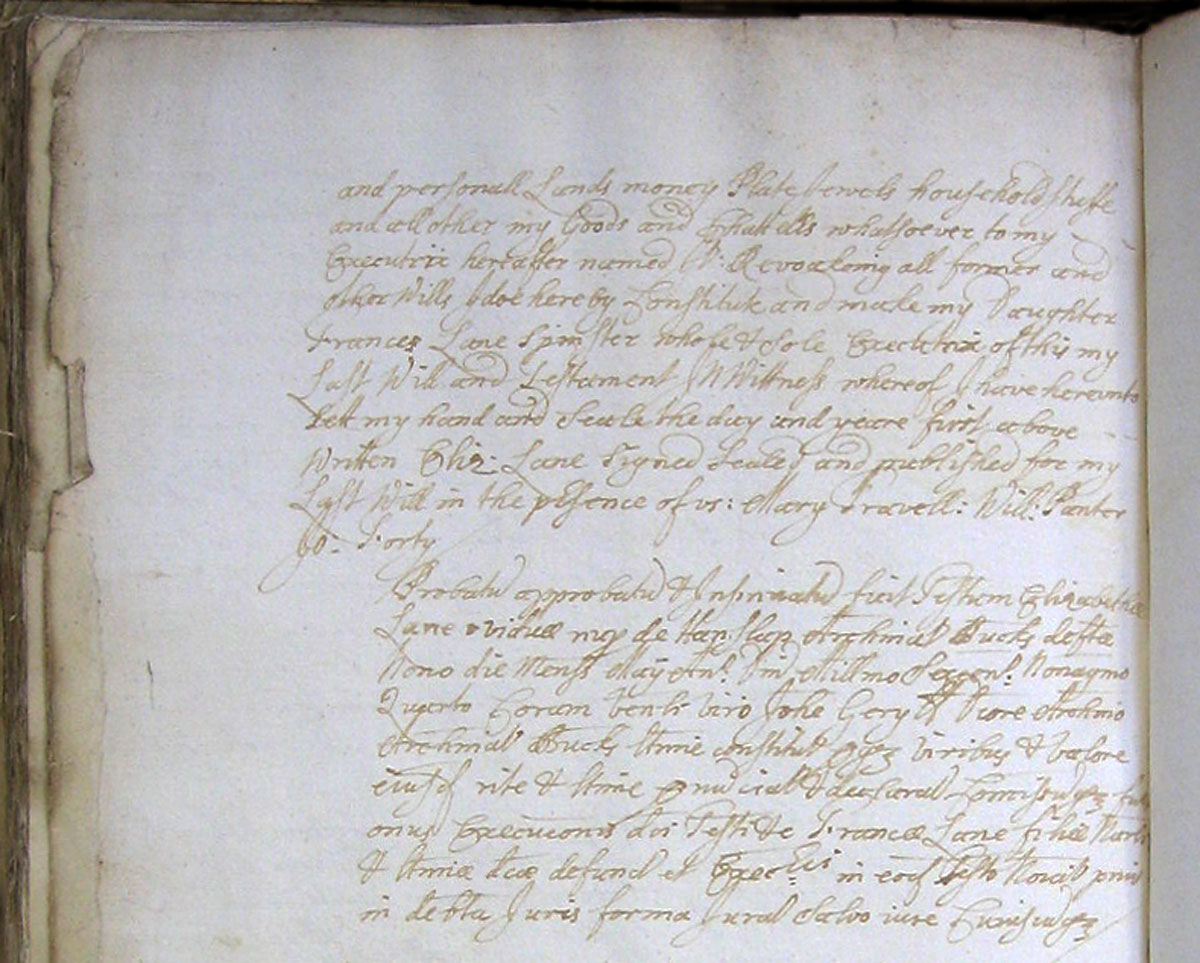 and personall Lands money Plate Jewels household stuffe
and all other my Goods and Chattells whatsoever to my
Executrix hereafter named Revoakeing all former and
other Wills I doe hereby Constitute and make my Daughter
Frances Lane Spinster whole & Sole Executrix of this my
Last Will and Testament In Wittness whereof I have hereunto
Sett my hand and Seale the day and yeare first above
Written Eliz: Lane Signed Sealed and published for my
Last Will in the presence of us: Mary Travell: Will: Panter
Jo. Forty
Probatu approbatu & Insinuatu fuit Testum Elizabethae
Lane viduae de Hanslap Archinat Bucks deftae
Nono die Mensis Maij Ano. Dni Millmo Sexcen. Nonagmo
Quarto Coram venli viro Johe Gery Archno
Archinat Bucks ltime constitut viribus & valore
eiusd rite & ltime Comissaq
onus Execuconis dci Testi & Francae Lane filiae
& ltimae dcae defunct et Execcis in eod Testo noiat
in debta Juris forma Jurat Salvo iure Cuiuscunq